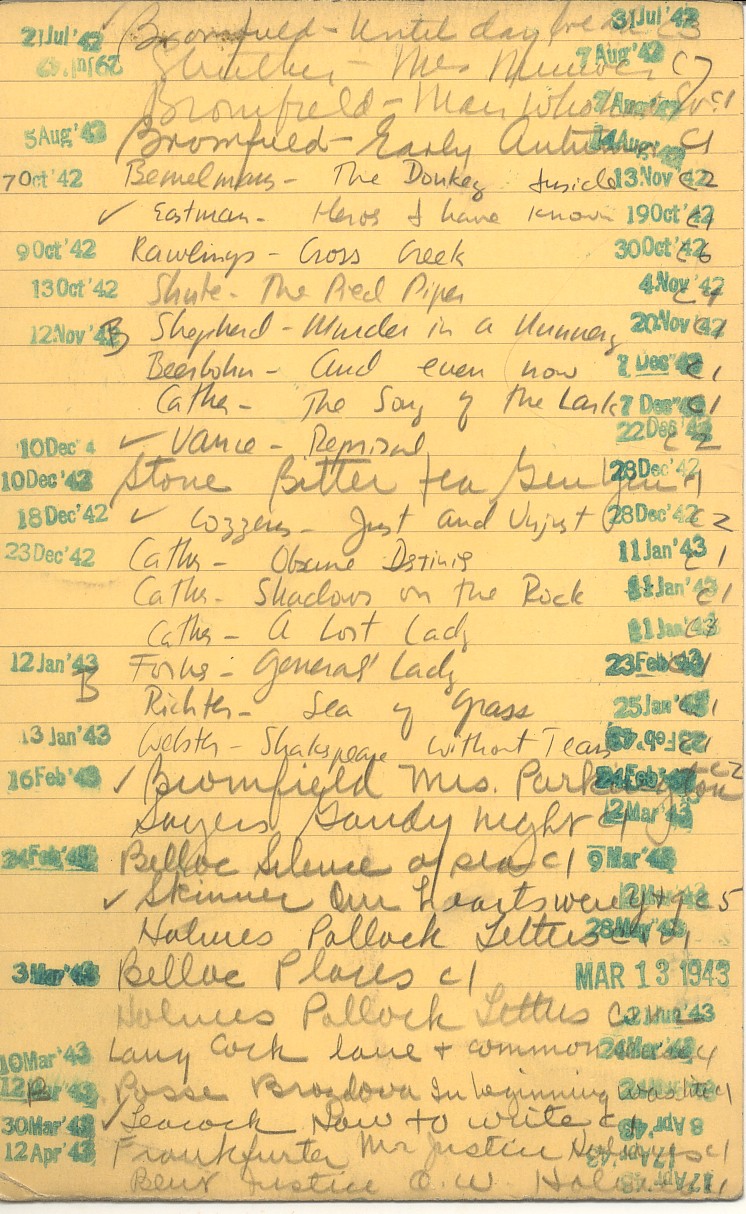 21 Jul '42 Bromfield - Until day 31 Jul '42 C3
Struther - Mrs Miniver 7 Aug '42 C7
Bromfield - Man who 7 Aug C1
5 Aug '42 Bromfield - Early Autumn 14 Aug '42 C1
7 Oct '42 Bemelmans - The Donkey Inside 13 Nov '42 C2
✓ Eastman - Heros I have known 19 Oct '42 C1
9 Oct '42 Rawlings - Cross Creek 30 Oct '42 C6
13 Oct '42 Shute - The Pied Piper 4 Nov '42 C4
12 Nov '42 B Shepherd - Murder in a Nunnery 20 Nov '42 C1
Beerbohm - And even now 7 Dec '42 C1
Cather - The Song of the Lark 7 Dec '42 C1
10 Dec '4 ✓ Vance - Reprisal 22 Dec '42 C2
10 Dec '42 Stone Bitter tea Gen Yen 28 Dec '42 C1
18 Dec '42 ✓ Cozzens - Just and Unjust 28 Dec '42 C2
23 Dec '42 Cather - Obscure Destinies 11 Jan '43 C1
Cather - Shadows on the Rock 11 Jan '43 C1
Cather - A Lost Lady 11 Jan '43
12 Jan '43 Forbes - General's Lady 23 Feb '43 C1
B Richter - Sea of Grass 25 Jan '43 C1
13 Jan '43 Webster - Shakspeare Without Tears 23 Feb '43 C1
16 Feb '43 ✓ Bromfield Mrs. Parkington 24 Feb '43 C2
Sayers Gaudy night C1 12 Mar '43
24 Feb '43 Belloc Silence of sea C1 9 Mar '43
✓ Skinner Our hearts were y + g C5 12 Mar '43
Holmes Pollock Letters C1 V1 28 May '43
3 Mar '43 Belloc Places C1 MAR 13 1943
Holmes Pollock Letters C1 2 Jun '43
10 Mar '43 Lang Cock lane + common 24 Mar '43
12 Mar '43 B Posse Brazdova In beginning was the C1
30 Mar '43 ✓ Leacock How to write C1 8 Apr '43
12 Apr '43 Frankfurter Mr Justice Holmes C1 17 Apr '43
Bent Justice O. W. Holmes C1 17 Apr '43